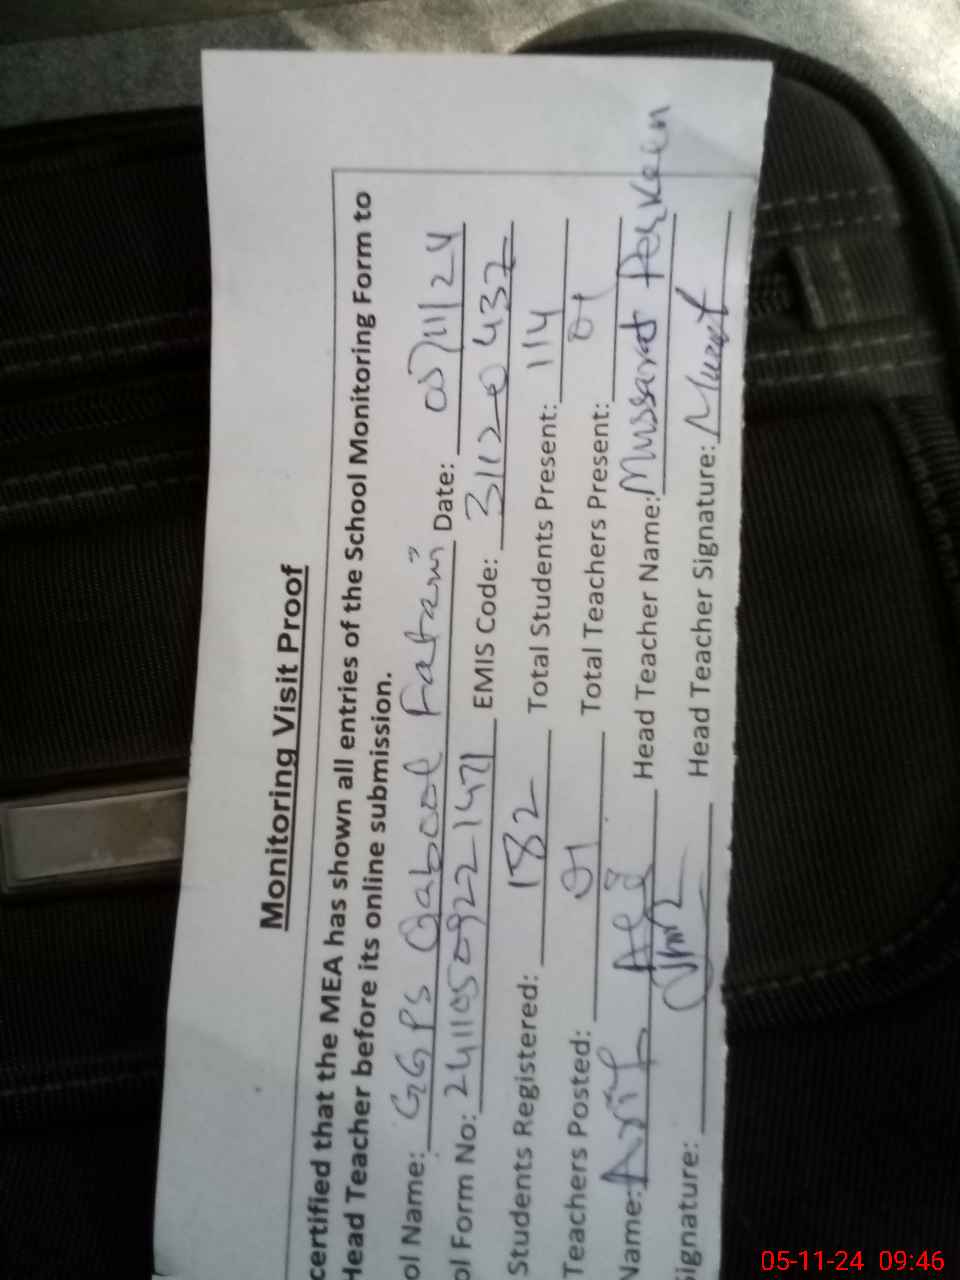 Monitoring Visit Proof
certified that the MEA has shown all entries of the School Monitoring Form to
Head Teacher before its online submission.
ol Name: GGPS Qabool Fatani Date: 05/11/24
ol Form No: 24110509221471 EMIS Code: 31120437
Students Registered: 182 Total Students Present: 114
Teachers Posted: 01 Total Teachers Present: 01
Name: Arif Head Teacher Name: Mussarat Perveen
ignature: Head Teacher Signature:
05-11-24 09:46